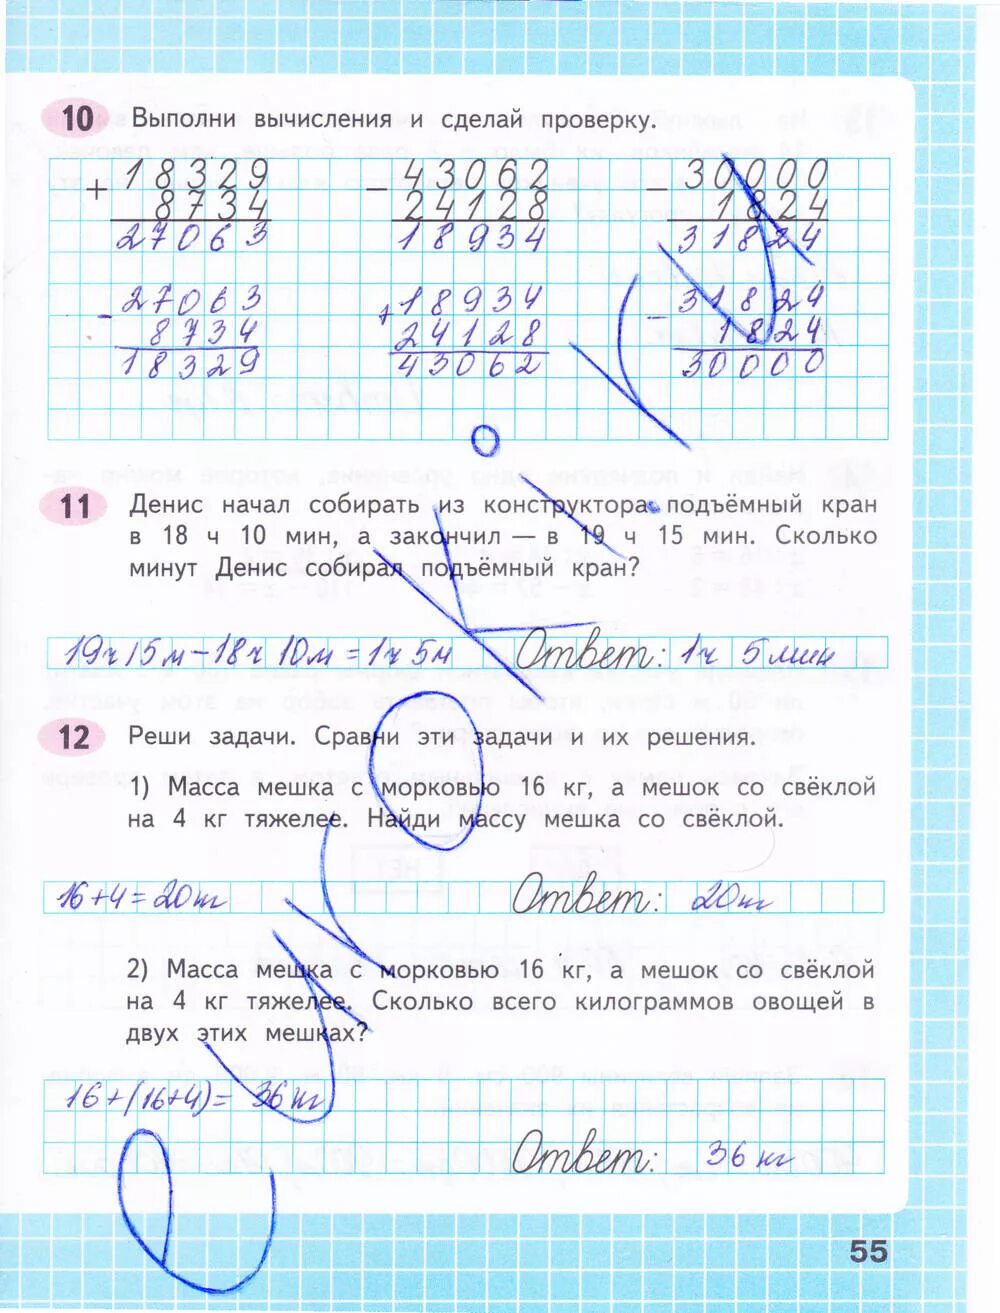 10 Выполни вычисления и сделай проверку.
+ 18329 − 43062 − 30000
8734 24128 1824
27063 18934 31824
− 27063 + 18934 − 31824
8734 24128 1824
18329 43062 30000
11 Денис начал собирать из конструктора подъёмный кран
в 18 ч 10 мин, а закончил — в 19 ч 15 мин. Сколько
минут Денис собирал подъёмный кран?
19ч15м−18ч10м=1ч5м Ответ: 1ч 5мин
12 Реши задачи. Сравни эти задачи и их решения.
1) Масса мешка с морковью 16 кг, а мешок со свёклой
на 4 кг тяжелее. Найди массу мешка со свёклой.
16+4=20кг Ответ: 20кг
2) Масса мешка с морковью 16 кг, а мешок со свёклой
на 4 кг тяжелее. Сколько всего килограммов овощей в
двух этих мешках?
16+(16+4)= 36кг
Ответ: 36кг
55